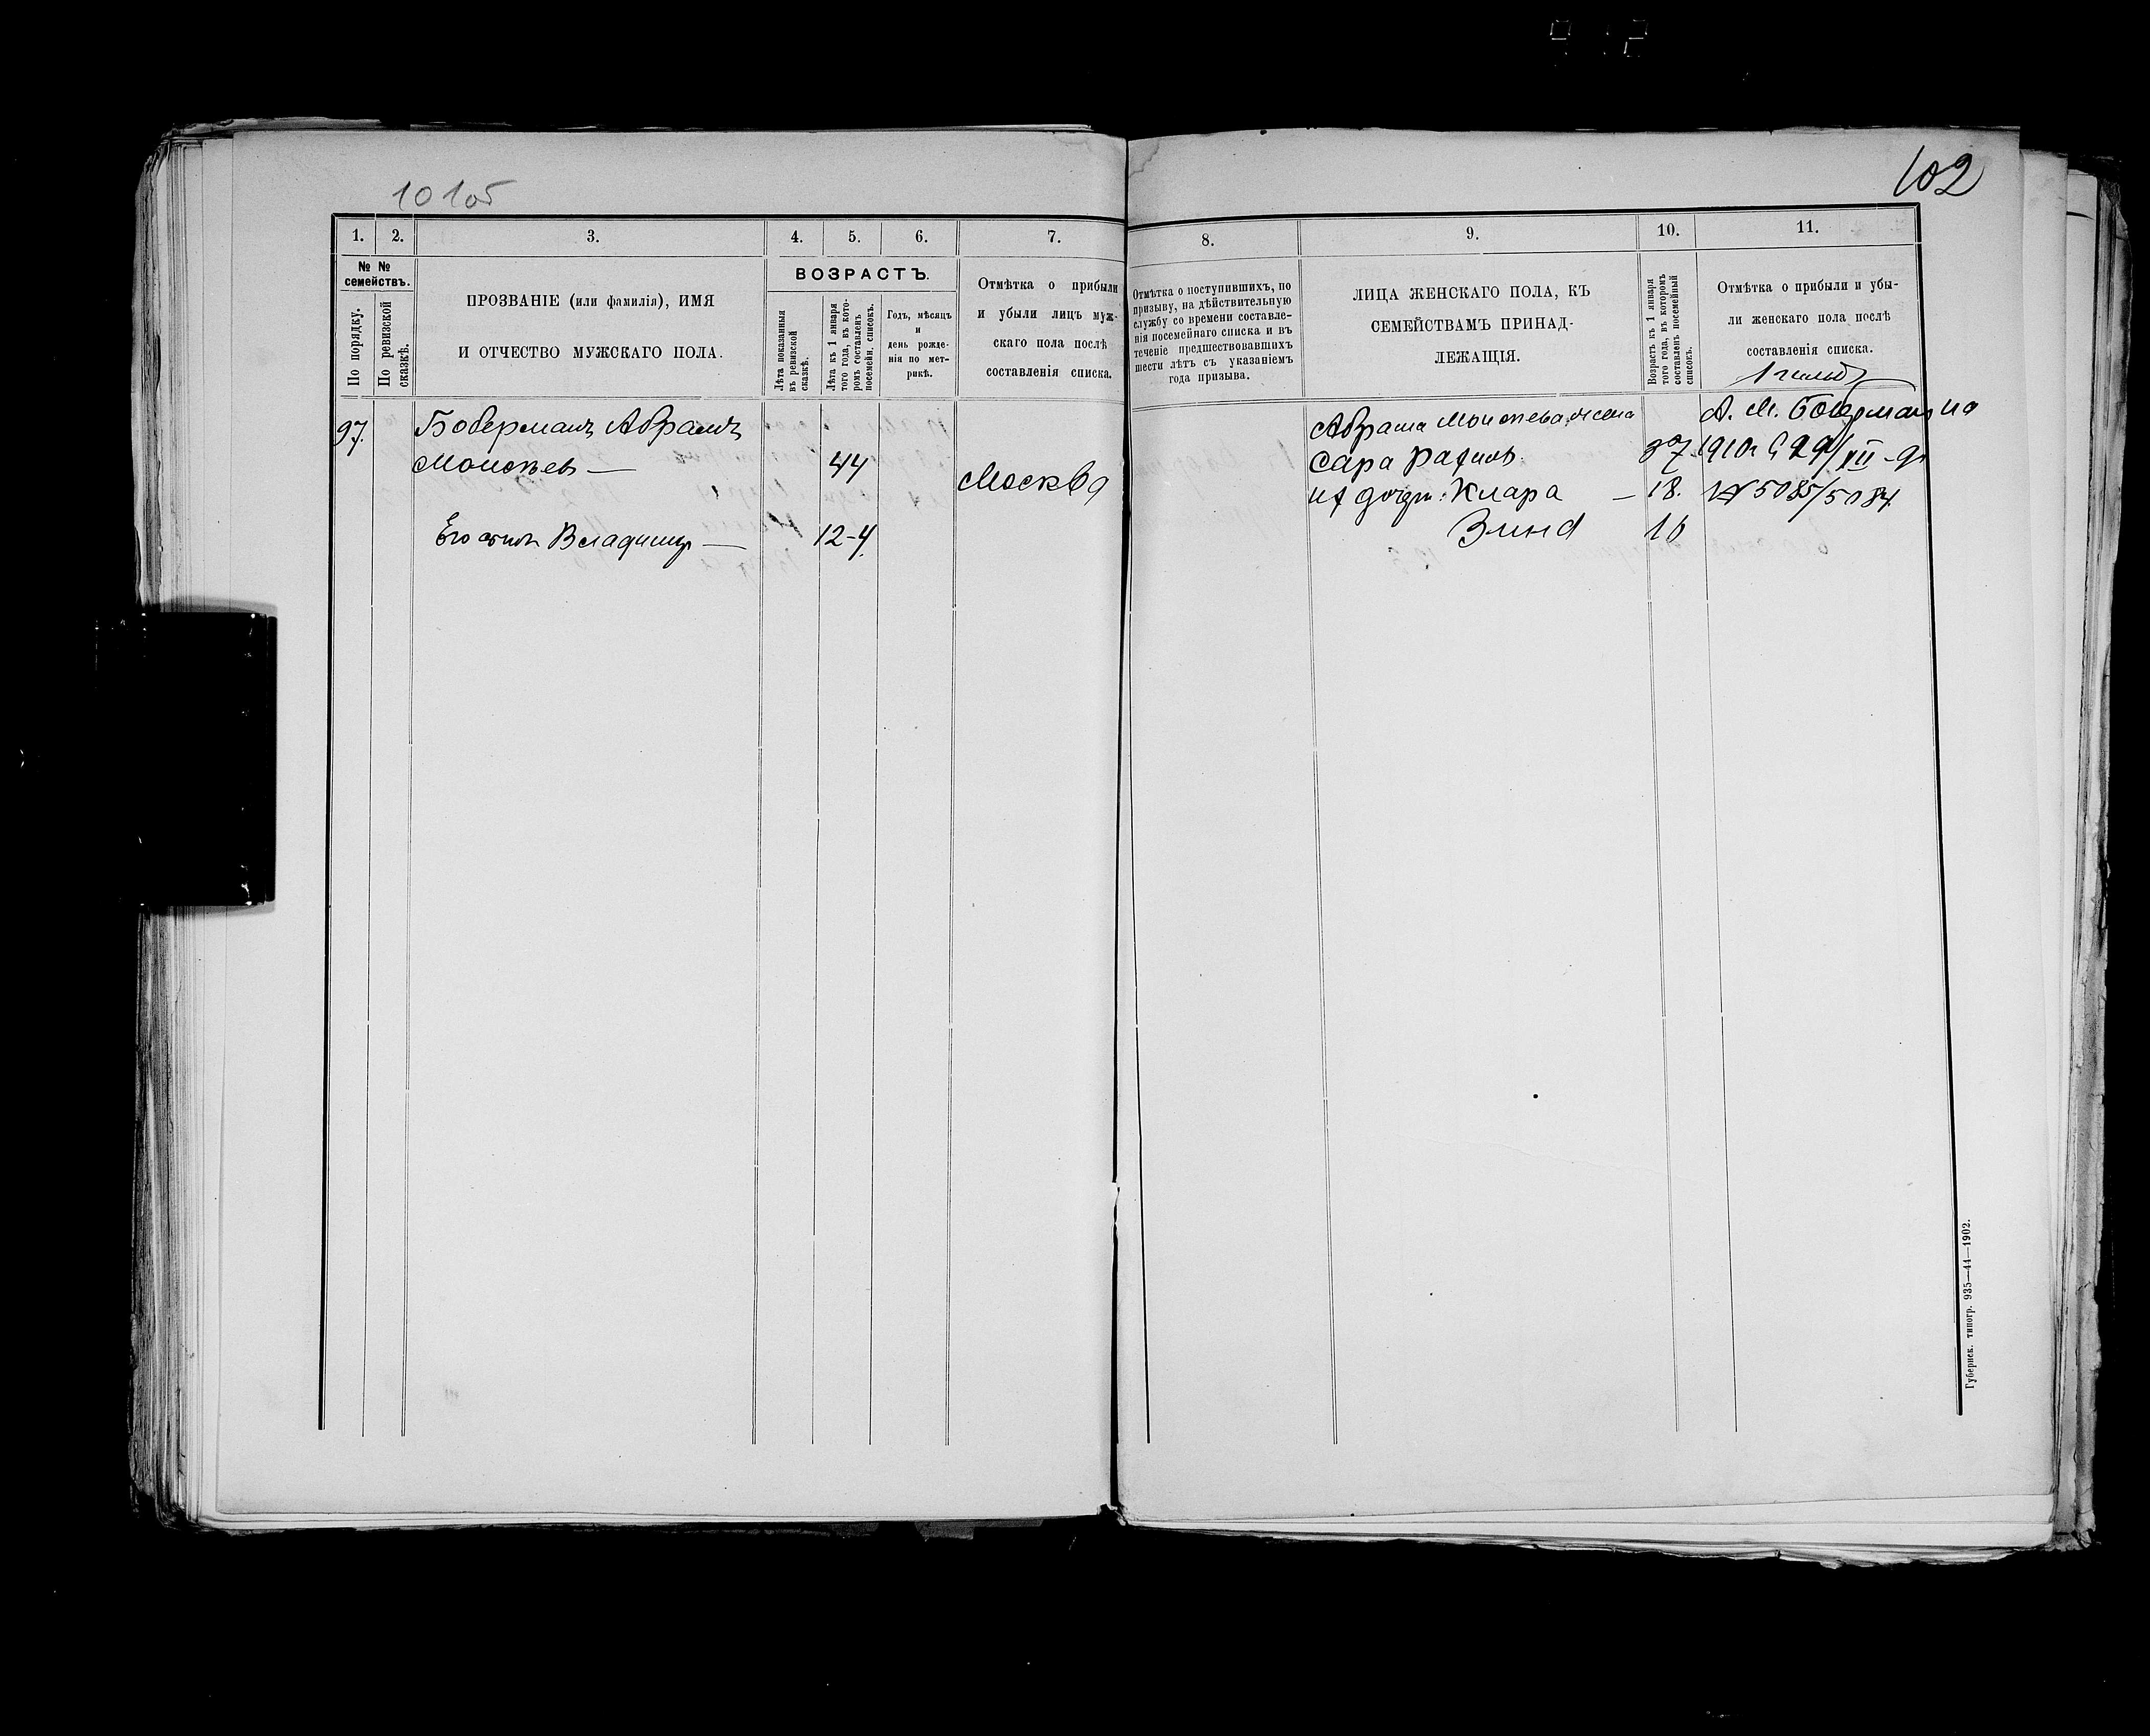 101об
102
1.
2.
3.
4.
5.
6.
7.
8.
9.
10.
11.
№ № семействъ.
По порядку.
По ревизской сказкѣ.
ПРОЗВАНІЕ (или фамилія), ИМЯ
И ОТЧЕСТВО МУЖСКАГО ПОЛА.
ВОЗРАСТЪ.
Лѣта показанныя
въ ревизской
сказкѣ.
Лѣта къ 1 января
того года, въ кото-
ромъ составленъ
посемейн. списокъ.
Годъ, мѣсяцъ
и
день рожде-
нія по мет-
рикѣ.
Отмѣтка о прибыли
и убыли лицъ муж-
скаго пола послѣ
составленія списка.
Отмѣтка о поступившихъ, по
призыву, на дѣйствительную
службу со времени составле-
нія посемейнаго списка и въ
теченіе предшествовавшихъ
шести лѣтъ съ указаніемъ
года призыва.
ЛИЦА ЖЕНСКАГО ПОЛА, КЪ
СЕМЕЙСТВАМЪ ПРИНАД-
ЛЕЖАЩІЯ.
Возрастъ къ 1 января
того года, въ которомъ
составленъ посемейный
списокъ.
Отмѣтка о прибыли и убы-
ли женскаго пола послѣ
составленія списка.
97.
Боберманъ Абрамъ
Моисѣевъ —
44
Москва
Его сынъ Владимир —
12-4
Абрама Моисѣева жена
Сара Рахиль.
37
их дочери: Клара —
18.
Зина
16
1 гильд
А. М. Боберман на
1910г 29/XII-9г
№ 5085/5084.
Губернск. типогр. 935—44—1902.